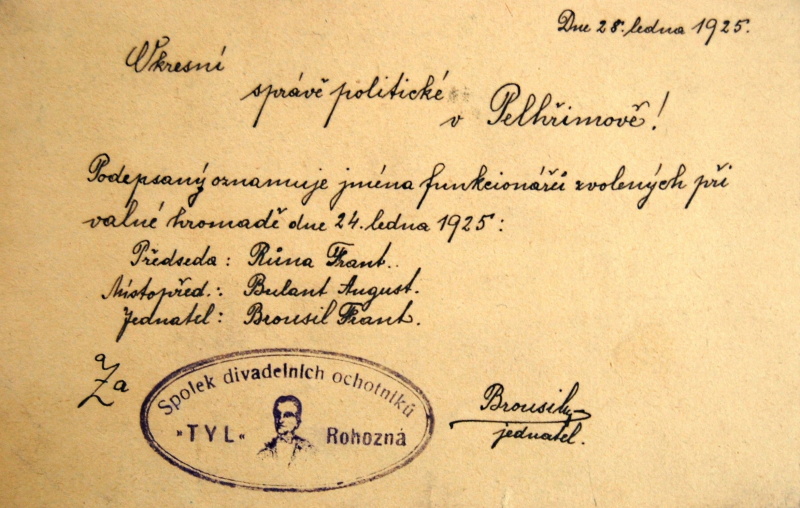 Dne 28. ledna 1925.
Okresní
správě politické
v Pelhřimově!
Podepsaný oznamuje jména funkcionářů zvolených při
valné hromadě dne 24. ledna 1925:
Předseda: Růna Frant.
Místopřed.: Bulant August.
Jednatel: Brousil Frant.
Za
Spolek divadelních ochotníků
»TYL« Rohozná
Brousil
jednatel.